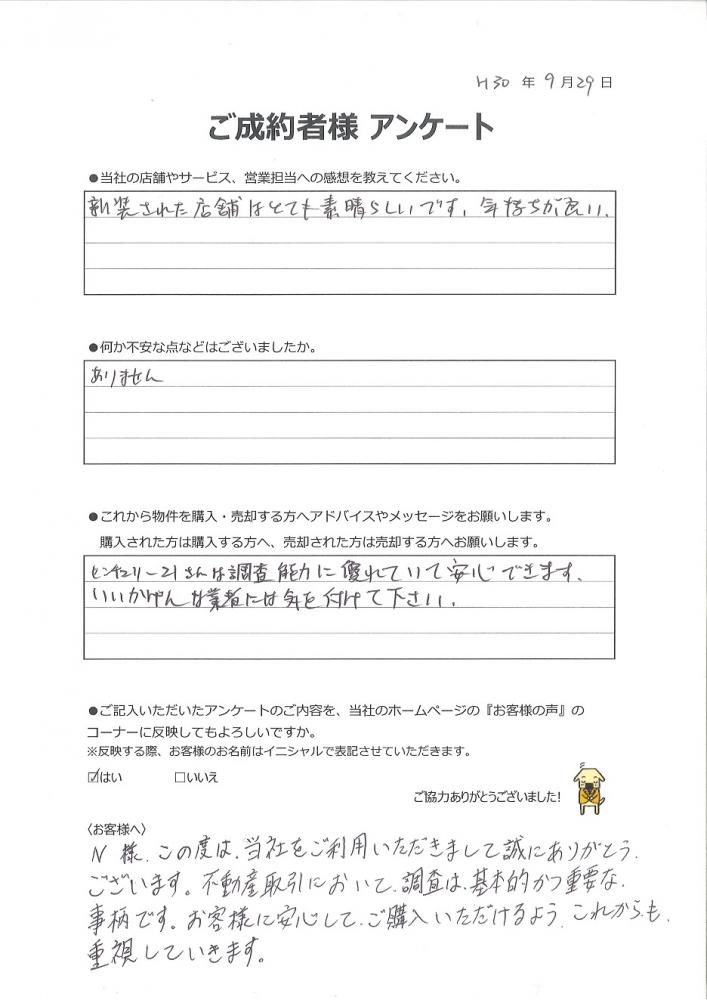 H30 年 9月29日
ご成約者様 アンケート
●当社の店舗やサービス、営業担当への感想を教えてください。
新装された店舗はとても素晴らしいです。気持ちが良い.
●何か不安な点などはございましたか。
ありません
●これから物件を購入・売却する方へアドバイスやメッセージをお願いします。
購入された方は購入する方へ、売却された方は売却する方へお願いします。
センチュリー21さんは調査能力に優れていて安心できます.
いいかげんな業者には気を付けて下さい.
●ご記入いただいたアンケートのご内容を、当社のホームページの『お客様の声』の
コーナーに反映してもよろしいですか。
※反映する際、お客様のお名前はイニシャルで表記させていただきます。
☑はい □いいえ
ご協力ありがとうございました!
〈お客様へ〉
N 様、この度は、当社をご利用いただきまして誠にありがとう
ございます。不動産取引において、調査は、基本的かつ重要な
事柄です。お客様に安心して、ご購入いただけるよう、これからも、
重視していきます。